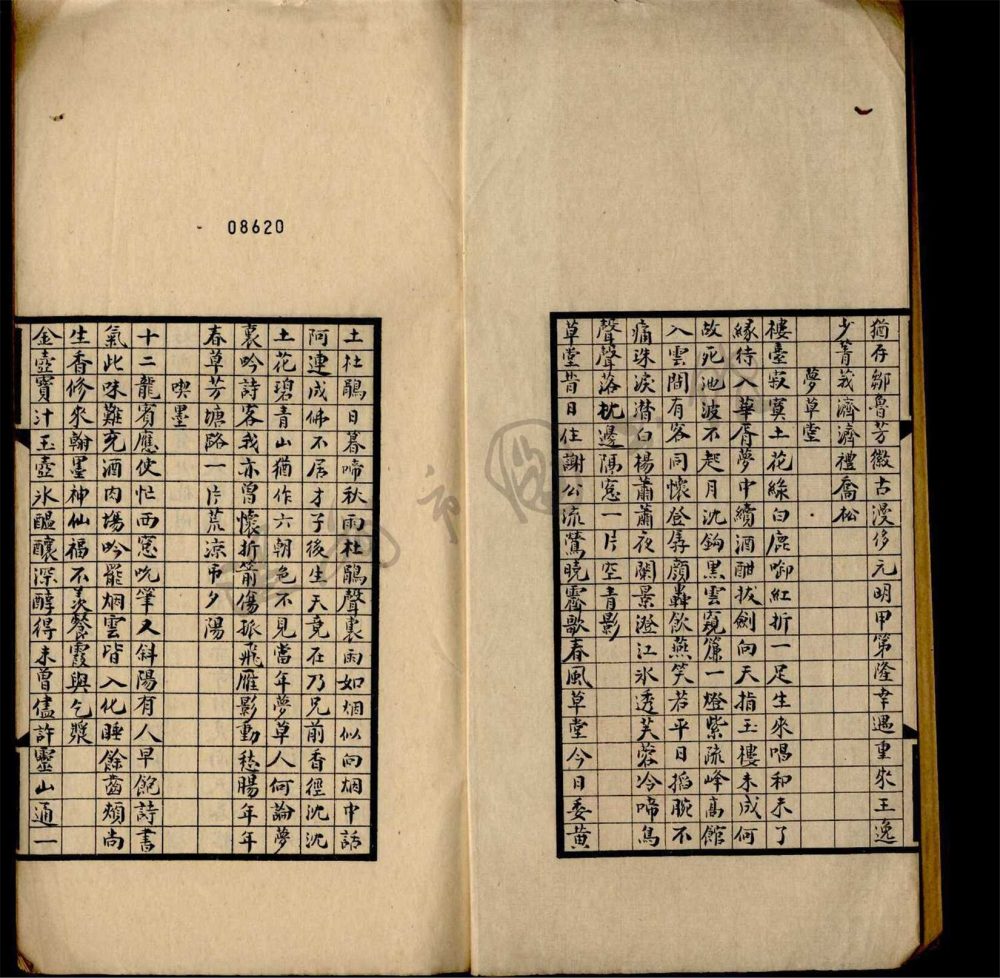 猶存鄒魯芳徽古漫侈元明甲第隆幸遇重來王逸
少菁莪濟濟禮喬松
夢草堂
樓臺寂寞土花綠白鹿啣紅折一足生來唱和未了
緣待入華胥夢中續酒酣拔劍向天指玉樓未成何
故死池波不起月沈鈎黑雲窺簾一燈紫疏峰高館
入雲間有客同懷登孱顏轟飲燕笑若平日搯腕不
痛珠淚潸白楊蕭蕭夜闌景澄江氷透芙蓉冷啼鳥
聲聲落枕邊隔窓一片空青影
草堂昔日住謝公流鶯曉囀歌春風草堂今日委黃
土杜鵑日暮啼秋雨杜鵑聲裏雨如烟似向烟中話
阿連成佛不居才子後生天竟在乃兄前香徑沈沈
土花碧青山猶作六朝色不見當年夢草人何論夢
裏吟詩客我亦曾懷折箭傷孤飛雁影動愁腸年年
春草芳塘路一片荒涼弔夕陽
喫墨
十二龍賓應使忙雨窓吮筆又斜陽有人早飽詩書
氣此味難充酒肉塲吟罷烟雲皆入化睡餘齒頰尚
生香修來翰墨神仙福不羨餐霞與乞漿
金壺寶汁玉壺氷醖釀深醇得未曾儘許靈山通一
08620